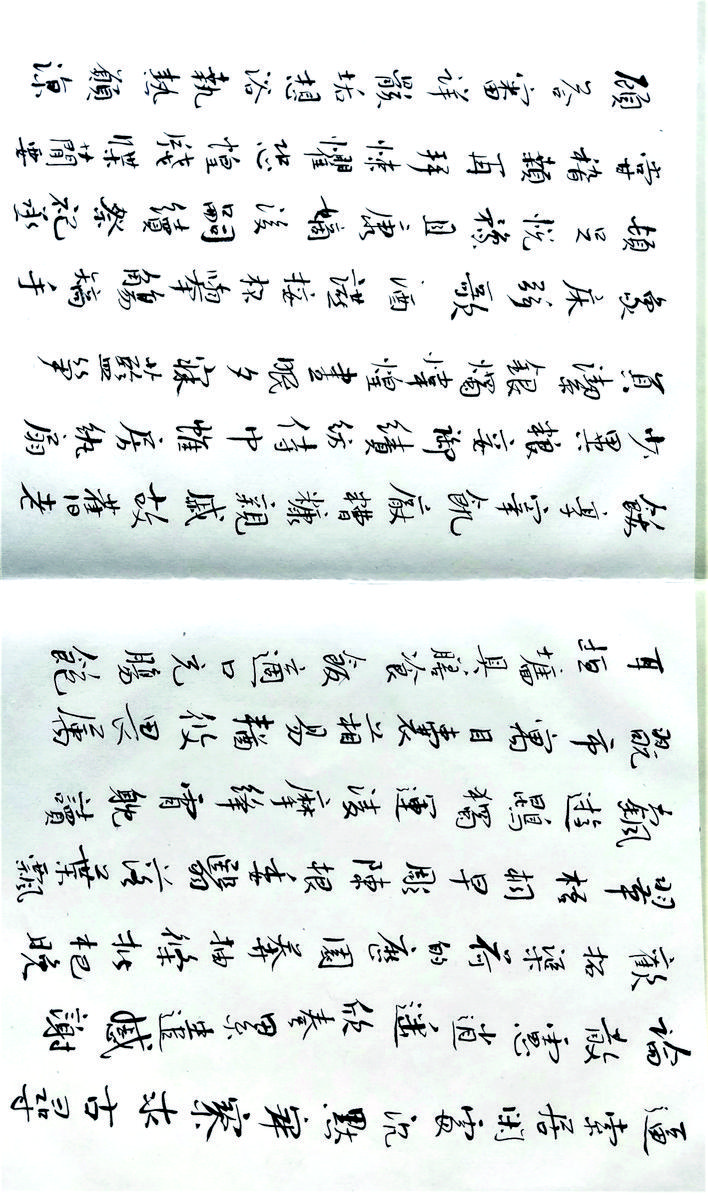 逼索居閑處沉默寂寥求古尋
論散慮逍遙欣奏累遣慼謝
歡招渠荷的歷園莽抽條枇杷晚
翠梧桐早凋陳根委翳落葉飄
飖遊鵾獨運凌摩絳霄耽讀
翫市寓目囊箱易輶攸畏屬
耳垣牆具膳飡飯適口充腸飽
飫享宰飢厭糟糠親戚故舊老
少異糧妾御績紡侍巾帷房紈扇
員潔銀燭煒煌晝眠夕寐藍筍
象床弦歌酒讌接杯舉觴矯手
頓足悅豫且康嫡後嗣續祭祀烝
嘗稽顙再拜悚懼恐惶牋牒簡要
顧答審詳骸垢想浴執熱願涼